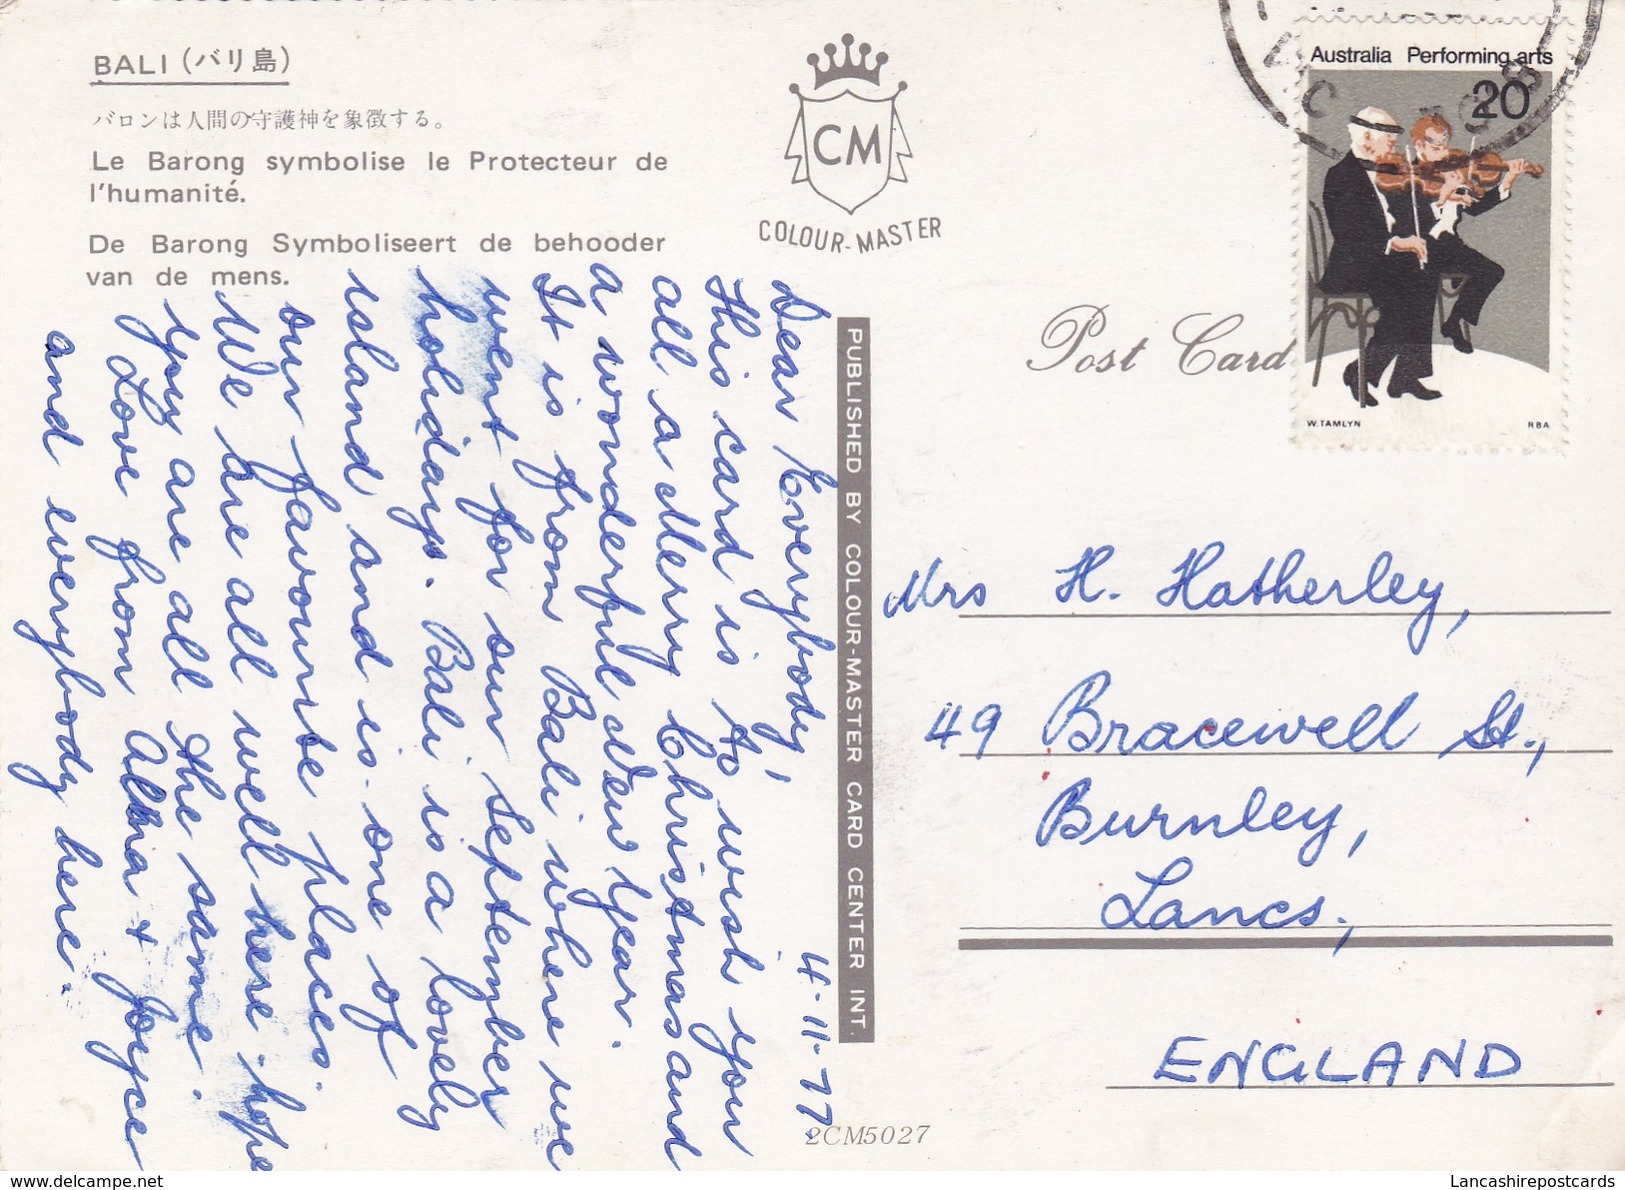 BALI (バリ島)
バロンは人間の守護神を象徴する。
Le Barong symbolise le Protecteur de
l'humanité.
De Barong Symboliseert de behooder
van de mens.
CM
COLOUR-MASTER
Post Card
Australia Performing arts
20
W. TAMLYN RBA
VIC
PUBLISHED BY COLOUR-MASTER CARD CENTER INT.
4-11-77
Dear Everybody,
this card is to wish you
all a Merry Christmas and
a wonderful New Year.
It is from Bali where we
went for our September
holidays. Bali is a lovely
island and is one of
our favourite places.
We are all well here hope
you are all the same.
Love from Alma + Joyce
and everybody here.
Mrs H. Hatherley,
49 Bracewell St.,
Burnley,
Lancs.,
ENGLAND
2CM5027
delcampe.net
Lancashirepostcards